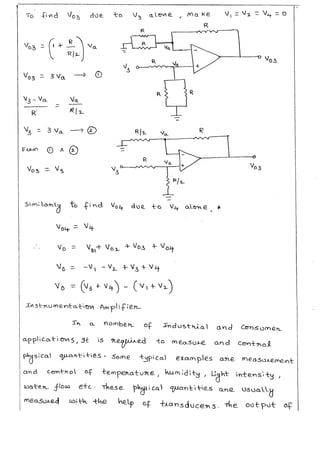 To find V03 due to V3 alone, make V1 = V2 = V4 = 0
R
R
R
V03 = (1 + R / R/2) Va
Va
V03
V03 = 3 Va → ①
V3
R
Va
R
R
V3 - Va / R = Va / R/2
V3 = 3 Va → ②
R/2
Va
R
From ① & ②
V03 = V3
V3
R
Va
V03
R/2
Similarly to find V04 due to V4 alone,
V04 = V4
∴ Vo = V01 + V02 + V03 + V04
Vo = -V1 - V2 + V3 + V4
Vo = (V3 + V4) - (V1 + V2)
Instrumentation Amplifier
In a number of Industrial and Consumer
applications, It is required to measure and control
physical quantities. Some typical examples are measurement
and control of temperature, humidity, Light intensity,
water flow etc. These physical quantities are usually
measured with the help of transducers. The output of